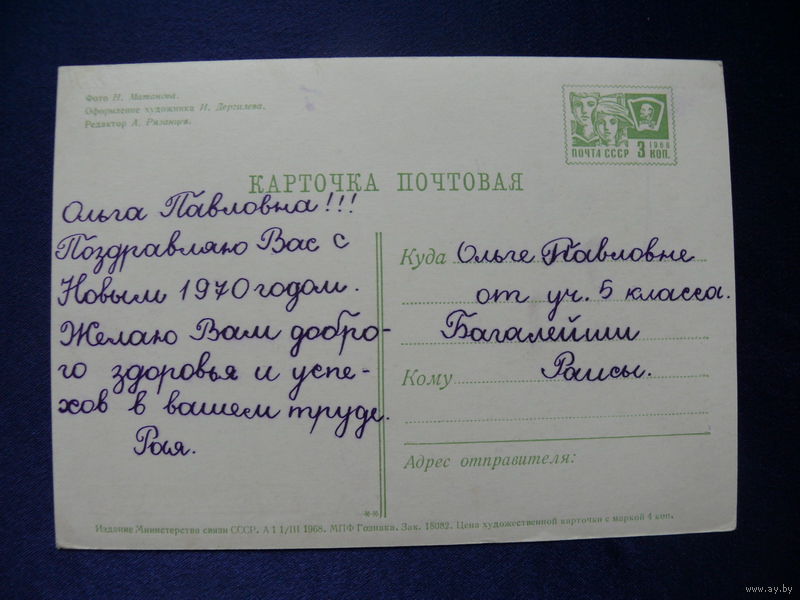 Фото Н. Матанова.
Оформление художника И. Дергилева.
Редактор А. Рязанцев.
ПОЧТА СССР 3 КОП.
1966
КАРТОЧКА ПОЧТОВАЯ
Ольга Павловна!!!
Поздравляю Вас с
Новым 1970 годом.
Желаю Вам добро-
го здоровья и успе-
хов в вашем труде.
Рая.
Куда Ольге Павловне
от уч. 5 класса.
Багалейши
Кому Раисы.
Адрес отправителя:
Издание Министерства связи СССР. А 1 1/III 1968. МПФ Гознака. Зак. 18082. Цена художественной карточки с маркой 4 коп.
www.ay.by